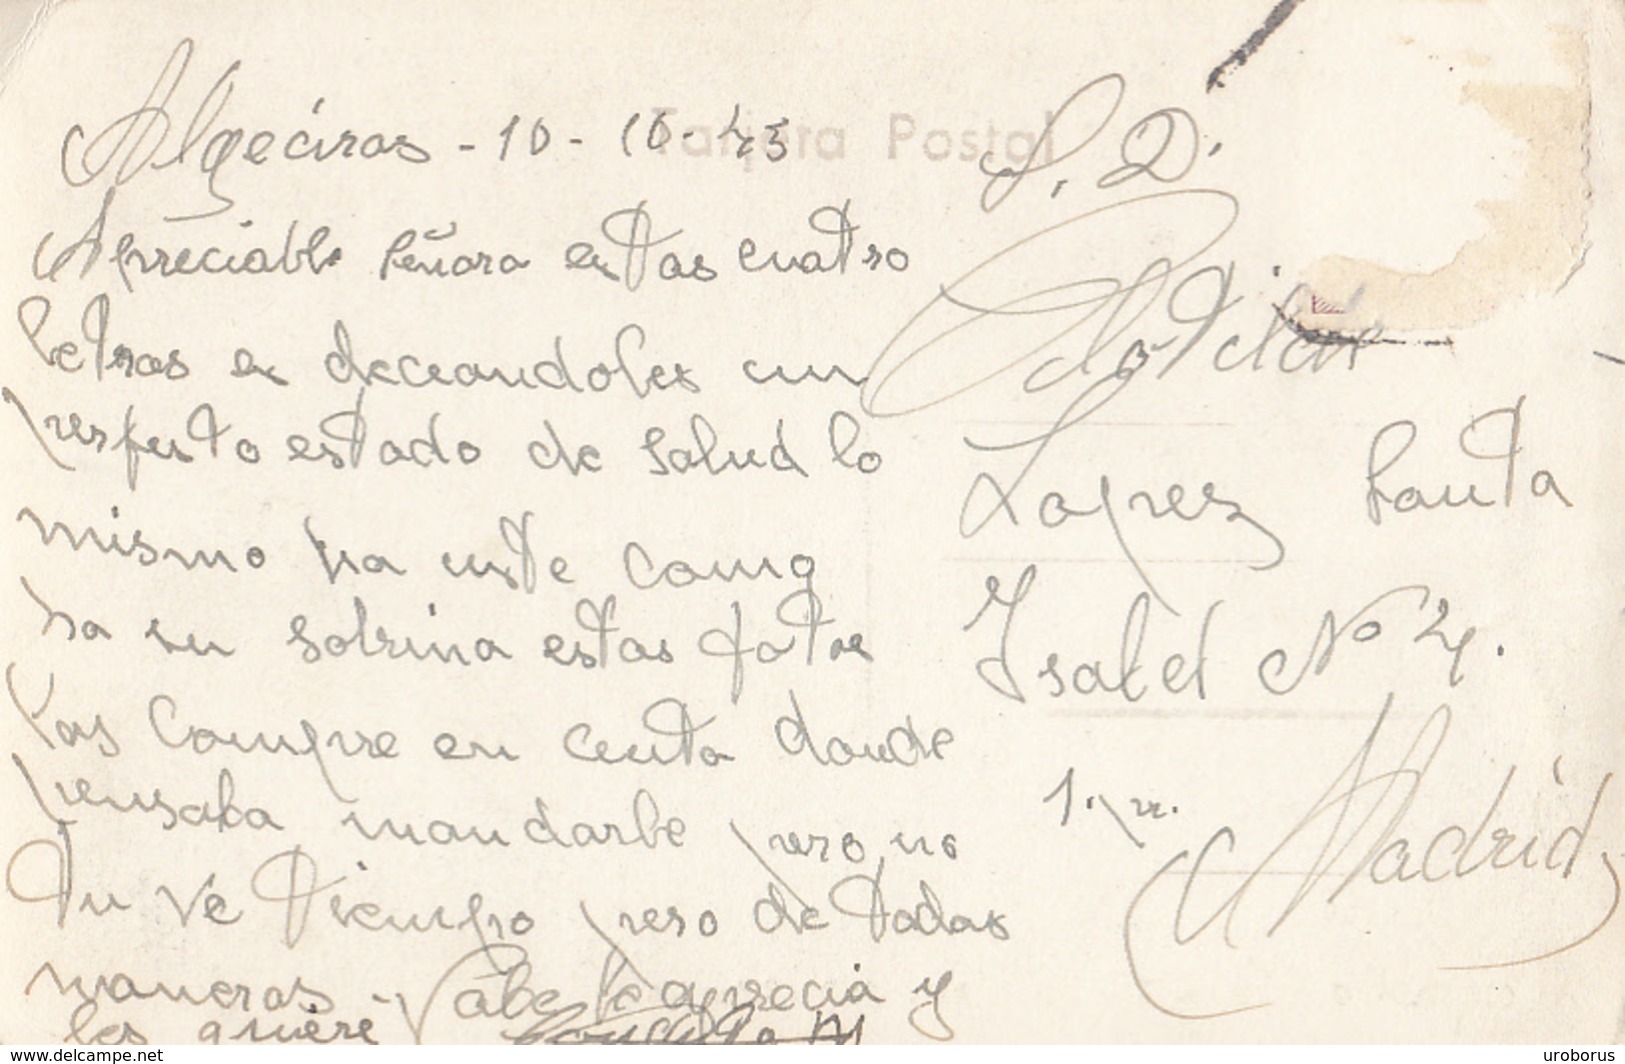 Algeciras - 10 - 10 - 45
Tarjeta Postal
Apreciable señora estas cuatro
letras es deceandoles un
perfesto estado de salud lo
mismo pa uste como
pa su sobrina estas fotos
las compre en ceuta donde
pensaba mandarle pero no
tu ve tiempo pero de todas
maneras - sabe le aprecia y
les quiere
S. D.
Clotilde
Lopez Santa
Ysabel Nº 4.
1. pr.
Madrid
www.delcampe.net
uroborus